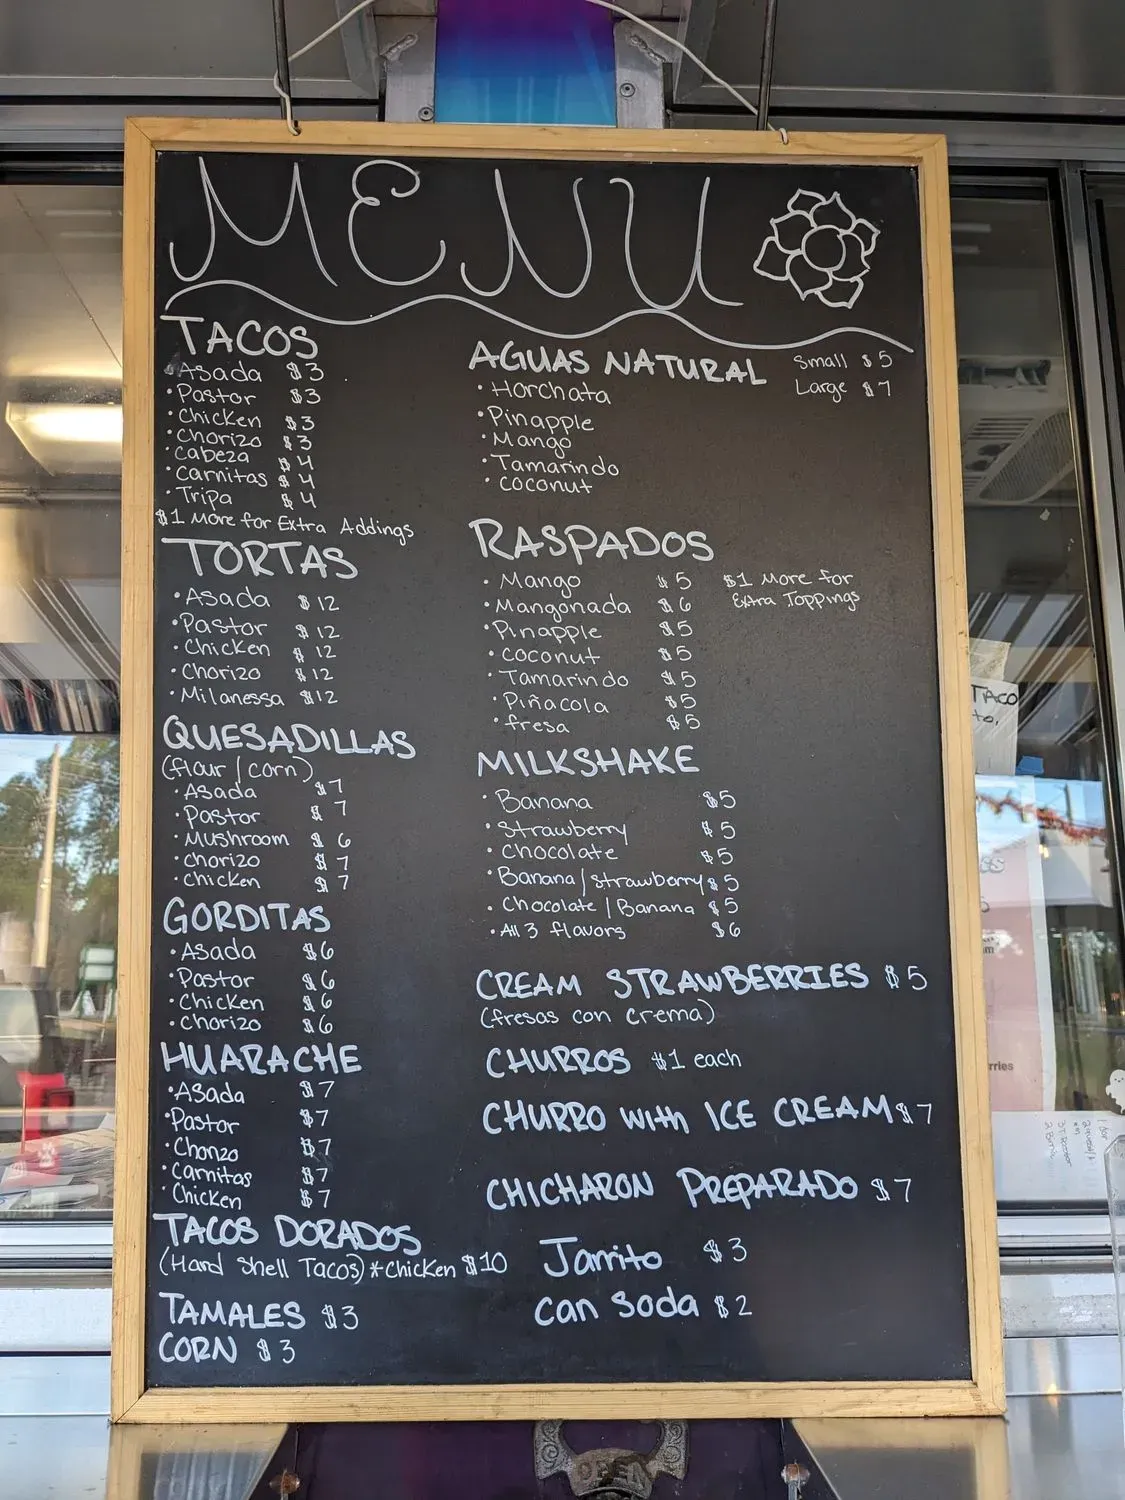 MENU
TACOS
• Asada $3
• Pastor $3
• Chicken $3
• Chorizo $3
• Cabeza $4
• Carnitas $4
• Tripa $4
$1 More for Extra Addings
TORTAS
• Asada $12
• Pastor $12
• Chicken $12
• Chorizo $12
• Milanessa $12
QUESADILLAS
(flour / corn)
• Asada $7
• Pastor $7
• Mushroom $6
• Chorizo $7
• Chicken $7
GORDITAS
• Asada $6
• Pastor $6
• Chicken $6
• Chorizo $6
HUARACHE
• Asada $7
• Pastor $7
• Chorizo $7
• Carnitas $7
• Chicken $7
TACOS DORADOS
(Hard Shell Tacos) *Chicken $10
TAMALES $3
CORN $3
AGUAS NATURAL Small $5
Large $7
• Horchata
• Pinapple
• Mango
• Tamarindo
• Coconut
RASPADOS
• Mango $5 $1 More for
• Mangonada $6 Extra Toppings
• Pinapple $5
• Coconut $5
• Tamarindo $5
• Piñacola $5
• fresa $5
MILKSHAKE
• Banana $5
• Strawberry $5
• Chocolate $5
• Banana / Strawberry $5
• Chocolate / Banana $5
• All 3 flavors $6
CREAM STRAWBERRIES $5
(fresas con crema)
CHURROS $1 each
CHURRO with ICE CREAM $7
CHICHARON PREPARADO $7
Jarrito $3
Can Soda $2
TACO